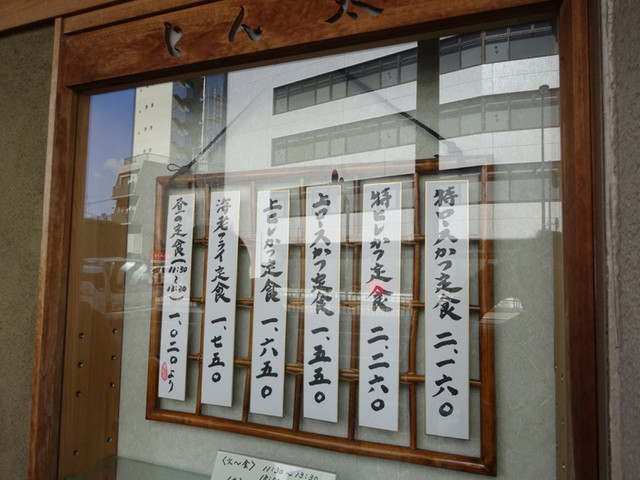 とん太
特ロースかつ定食 二、一六〇
特ヒレかつ定食 二、二六〇
上ロースかつ定食 一、五五〇
上ヒレかつ定食 一、六五〇
海老フライ定食 一、七五〇
昼の定食(11:30〜13:30) 一、〇二〇より
〈火〜金〉 11:30〜13:30